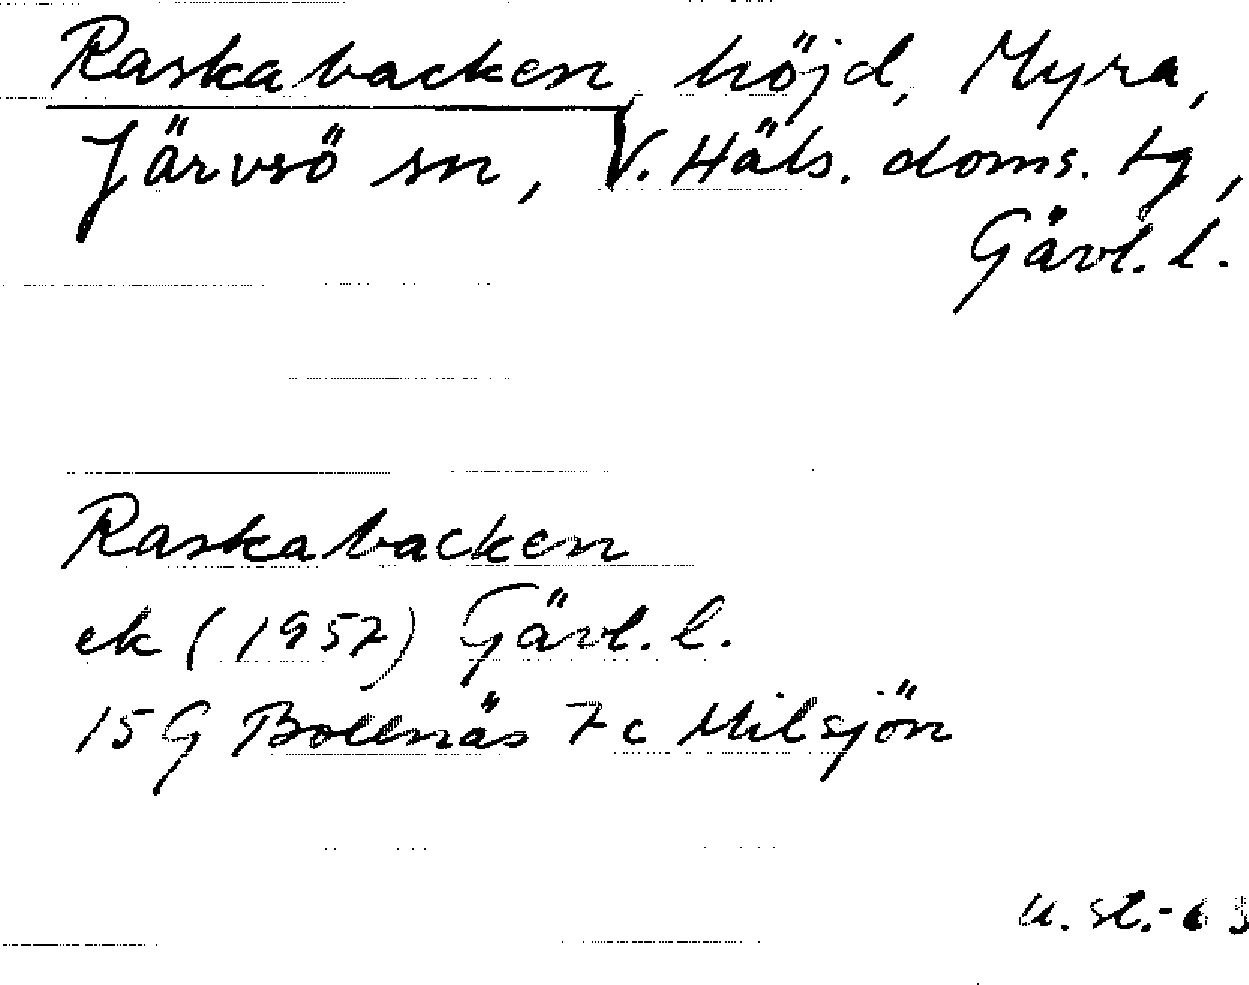 Raskabacken höjd, Myra,
Järvsö sn, V. Häls. doms. tg,
Gävl. l.
Raskabacken
ek (1957) Gävl. l.
15 G Bollnäs 7 c Milsjön
u. st.-63